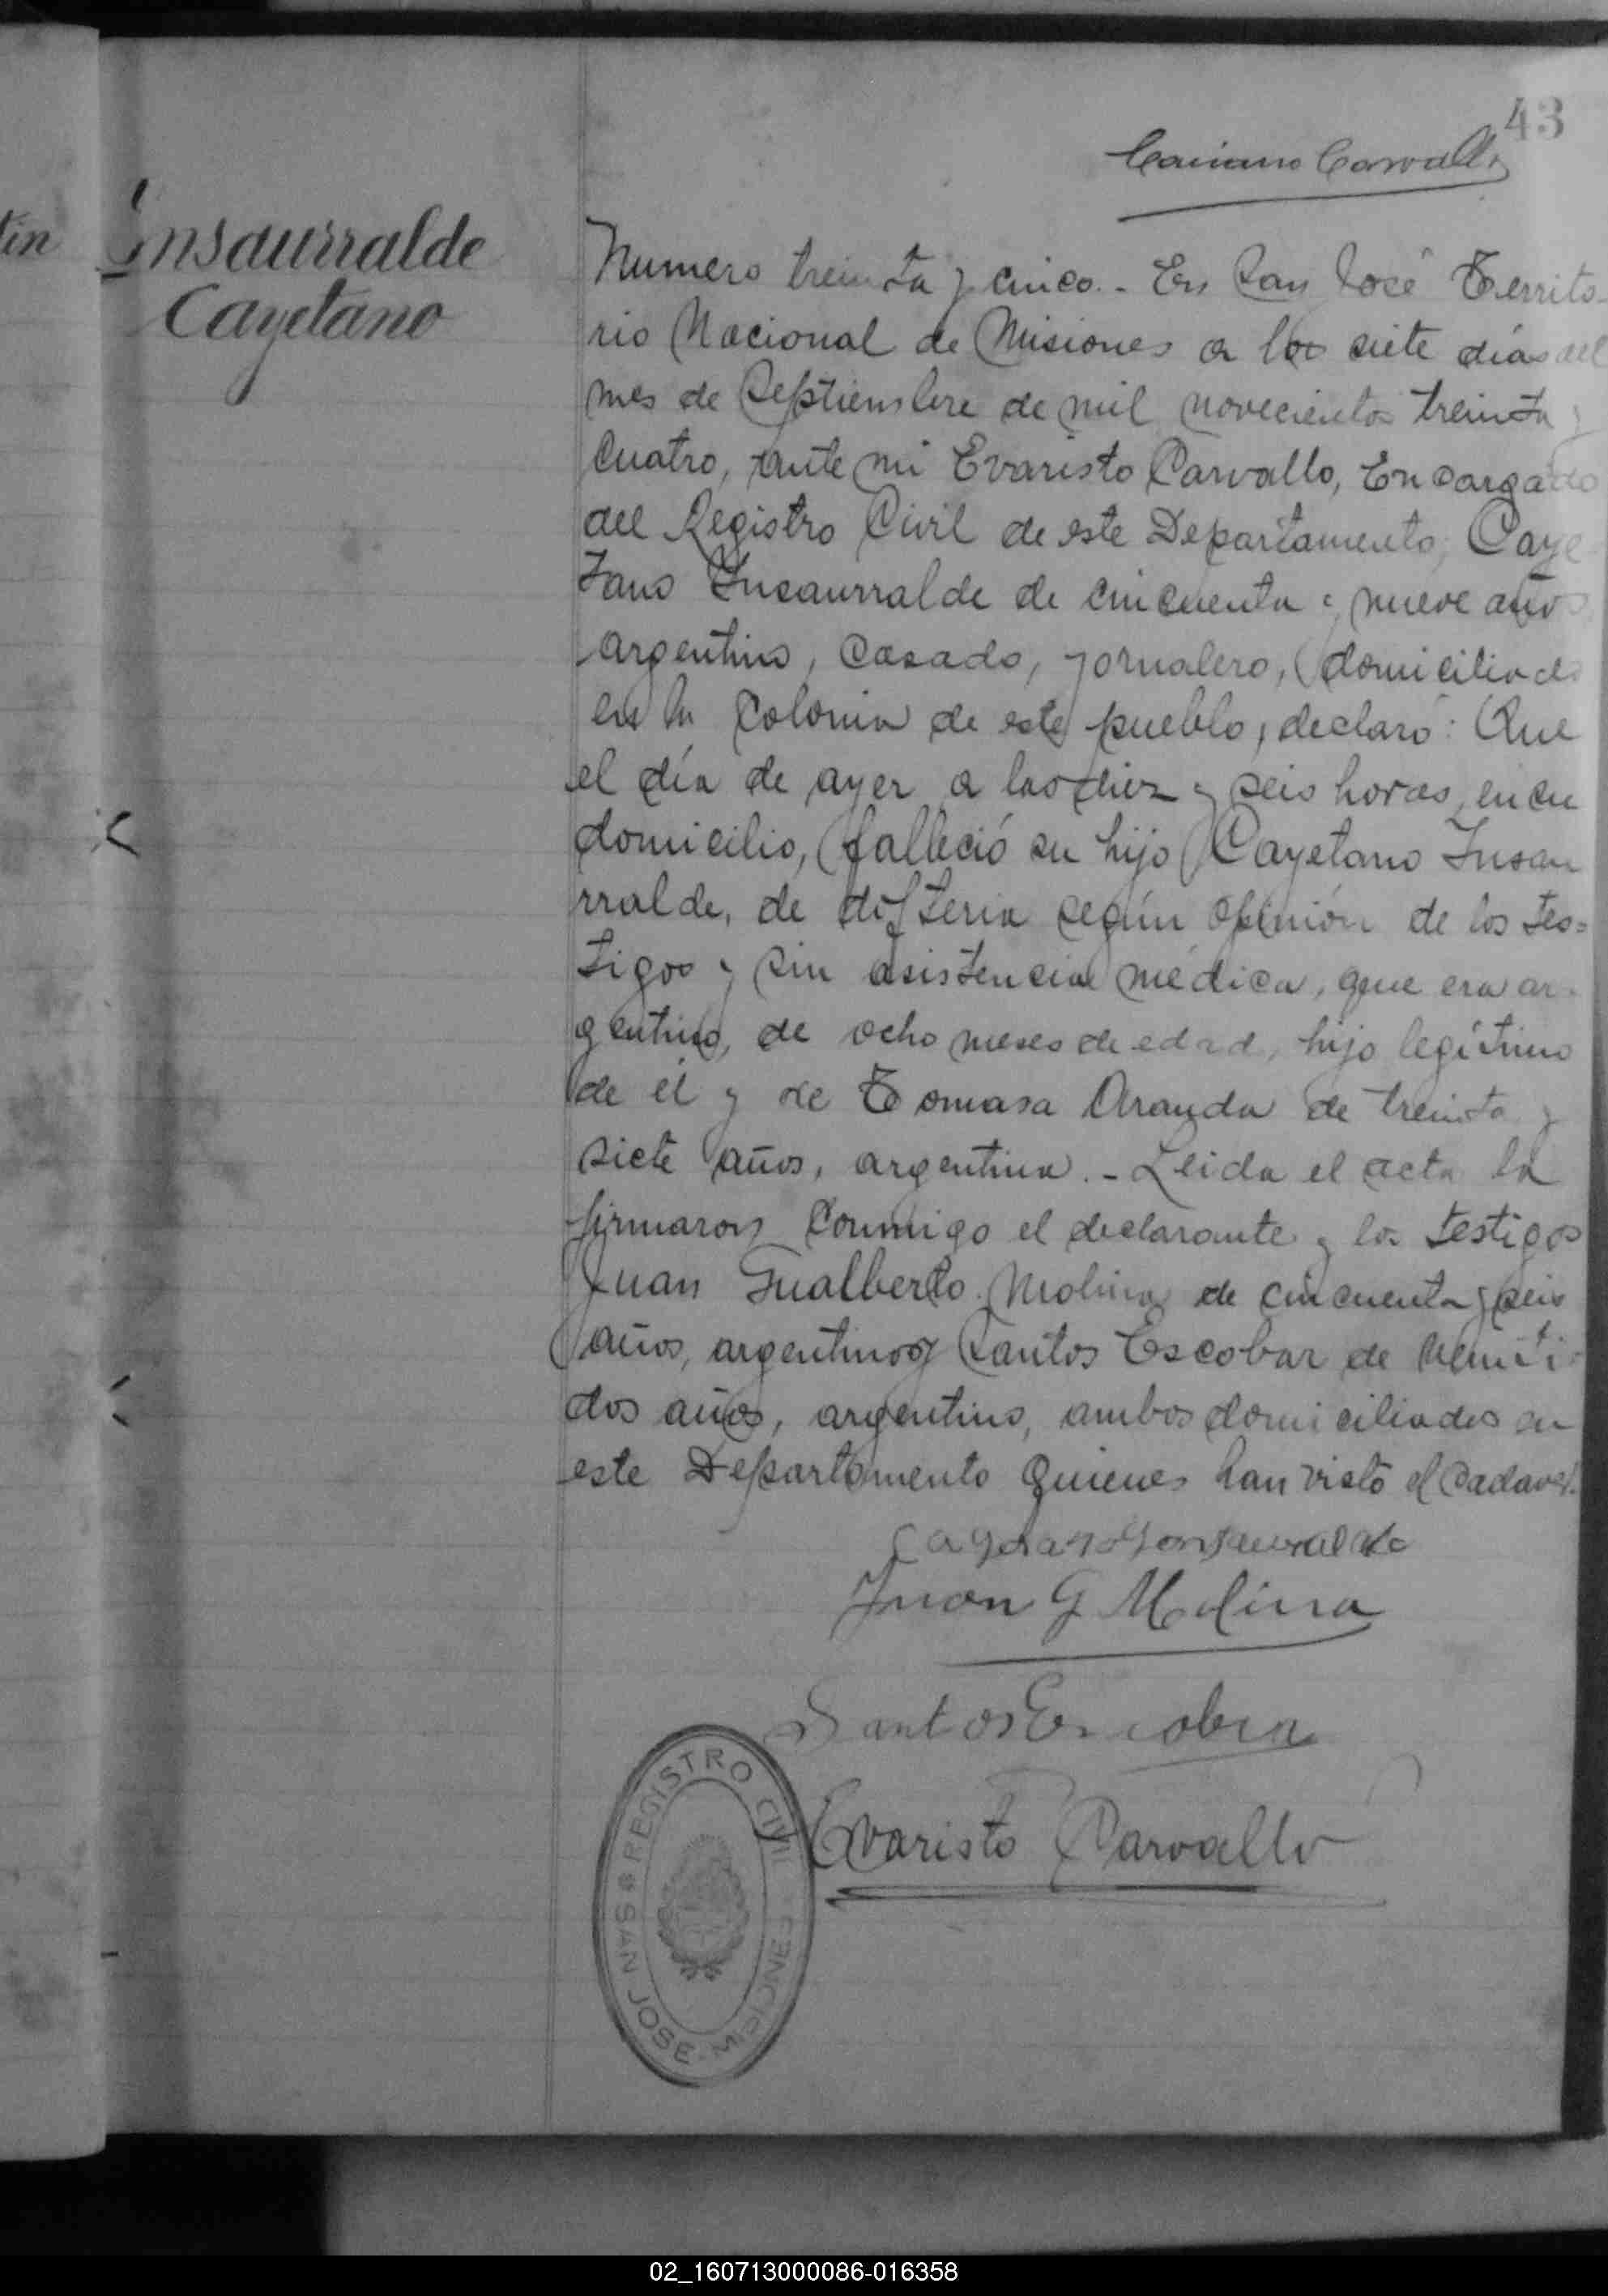 43
Caviano Carvallo
tin
Insaurralde
Cayetano
Numero treinta y cinco.- En San José Territo-
rio Nacional de Misiones a los siete días del
mes de Septiembre de mil novecientos treinta y
cuatro, ante mi Evaristo Carvallo, Encargado
del Registro Civil de este Departamento, Caye-
tano Insaurralde de cincuenta y nueve años
argentino, casado, jornalero, domiciliado
en la colonia de este pueblo, declaró: Que
el día de ayer a las diez y seis horas, en su
domicilio, falleció su hijo Cayetano Insau
rralde, de difteria según opinión de los tes=
tigos y sin asistencia médica, que era ar-
gentino, de ocho meses de edad, hijo legítimo
de él y de Tomasa Aranda de treinta y
siete años, argentina.- Leida el acta la
firmaron conmigo el declarante y los testigos
Juan Gualberto Molina de cincuenta y seis
años, argentino y Santos Escobar de veinti-
dos años, argentino, ambos domiciliados en
este Departamento quienes han visto el cadaver.
Juan G Molina
Santos Escobar
Evaristo Carvallo
REGISTRO CIVIL
SAN JOSE - MISIONES
02_160713000086-016358